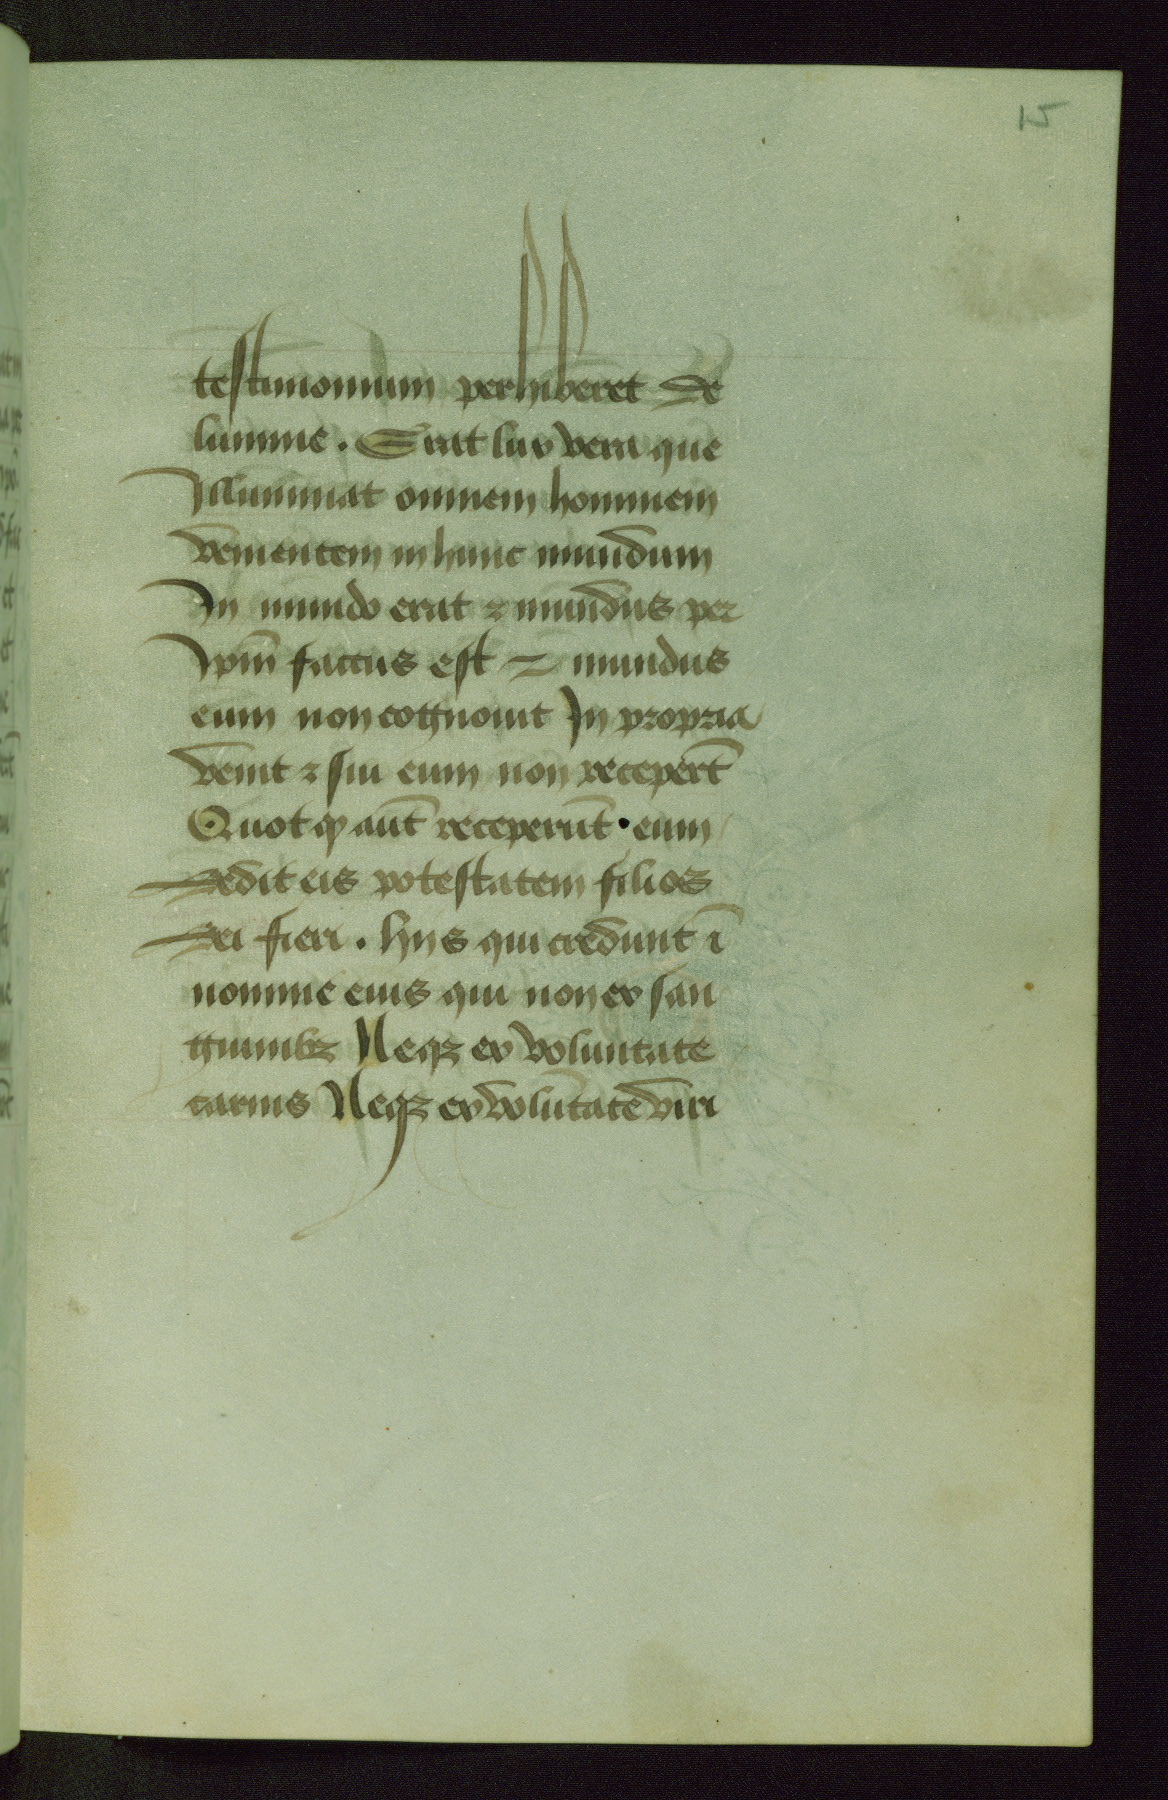 15
testimonium perhiberet de
lumine . Erat lux vera que
Illuminat omnem hominem
venientem in hunc mundum
In mundo erat ⁊ mundus per
Ipm̄ factus est ⁊ mundus
eum non cognouit In propria
venit ⁊ sui eum non recepert̄
Quotqꝫ aut̄ receperūt · eum
dedit eis potestatem filios
dei fieri . hijs qui credunt ī
nomine eius qui non ex san
guinibꝫ Neqꝫ ex voluntate
carnis Neqꝫ ex volūtate viri